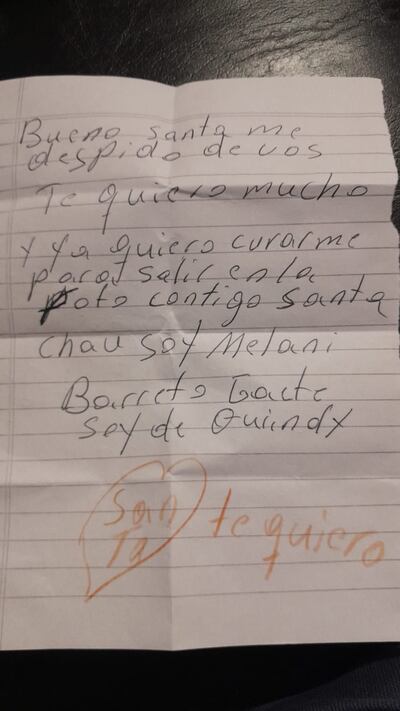 Bueno santa me
despido de vos
Te quiero mucho
y ya quiero curarme
para salir en la
foto contigo santa
chau soy Melani
Barreto Gaete
soy de Quiindy
San
Ta
te quiero